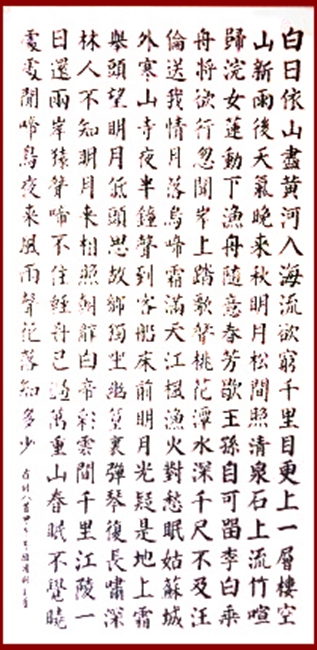 白日依山盡黃河入海流欲窮千里目更上一層樓空
山新雨後天氣晚來秋明月松間照清泉石上流竹喧
歸浣女蓮動下漁舟隨意春芳歇王孫自可留李白乘
舟將欲行忽聞岸上踏歌聲桃花潭水深千尺不及汪
倫送我情月落烏啼霜滿天江楓漁火對愁眠姑蘇城
外寒山寺夜半鐘聲到客船床前明月光疑是地上霜
舉頭望明月低頭思故鄉獨坐幽篁裏彈琴復長嘯深
林人不知明月來相照朝辭白帝彩雲間千里江陵一
日還兩岸猿聲啼不住輕舟已過萬重山春眠不覺曉
處處聞啼鳥夜来風雨聲花落知多少